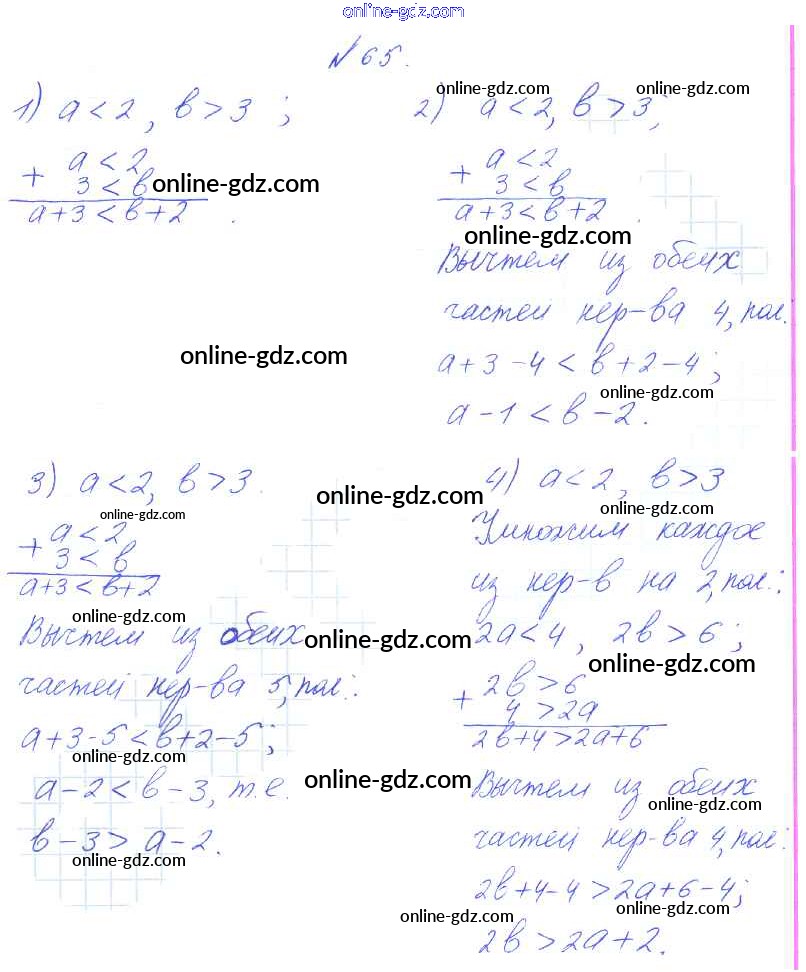 online-gdz.com
№65.
1) a < 2, b > 3 ;
+ a < 2
3 < b
online-gdz.com
a+3 < b+2 .
online-gdz.com
online-gdz.com
2) a < 2, b > 3;
+ a < 2
3 < b
a+3 < b+2 .
online-gdz.com
Вычтем из обеих
частей нер-ва 4, пол.:
a+3-4 < b+2-4;
online-gdz.com
a-1 < b-2.
3) a < 2, b > 3.
online-gdz.com
online-gdz.com
+ a < 2
3 < b
a+3 < b+2
online-gdz.com
Вычтем из обеих
online-gdz.com
частей нер-ва 5, пол.:
a+3-5 < b+2-5;
online-gdz.com
a-2 < b-3, т.е.
online-gdz.com
b-3 > a-2.
online-gdz.com
4) a < 2, b > 3
online-gdz.com
Умножим каждое
из нер-в на 2, пол.:
2a < 4, 2b > 6;
online-gdz.com
+ 2b > 6
4 > 2a
2b+4 > 2a+6
Вычтем из обеих
online-gdz.com
частей нер-ва 4, пол.:
2b+4-4 > 2a+6-4;
online-gdz.com
online-gdz.com
2b > 2a+2.